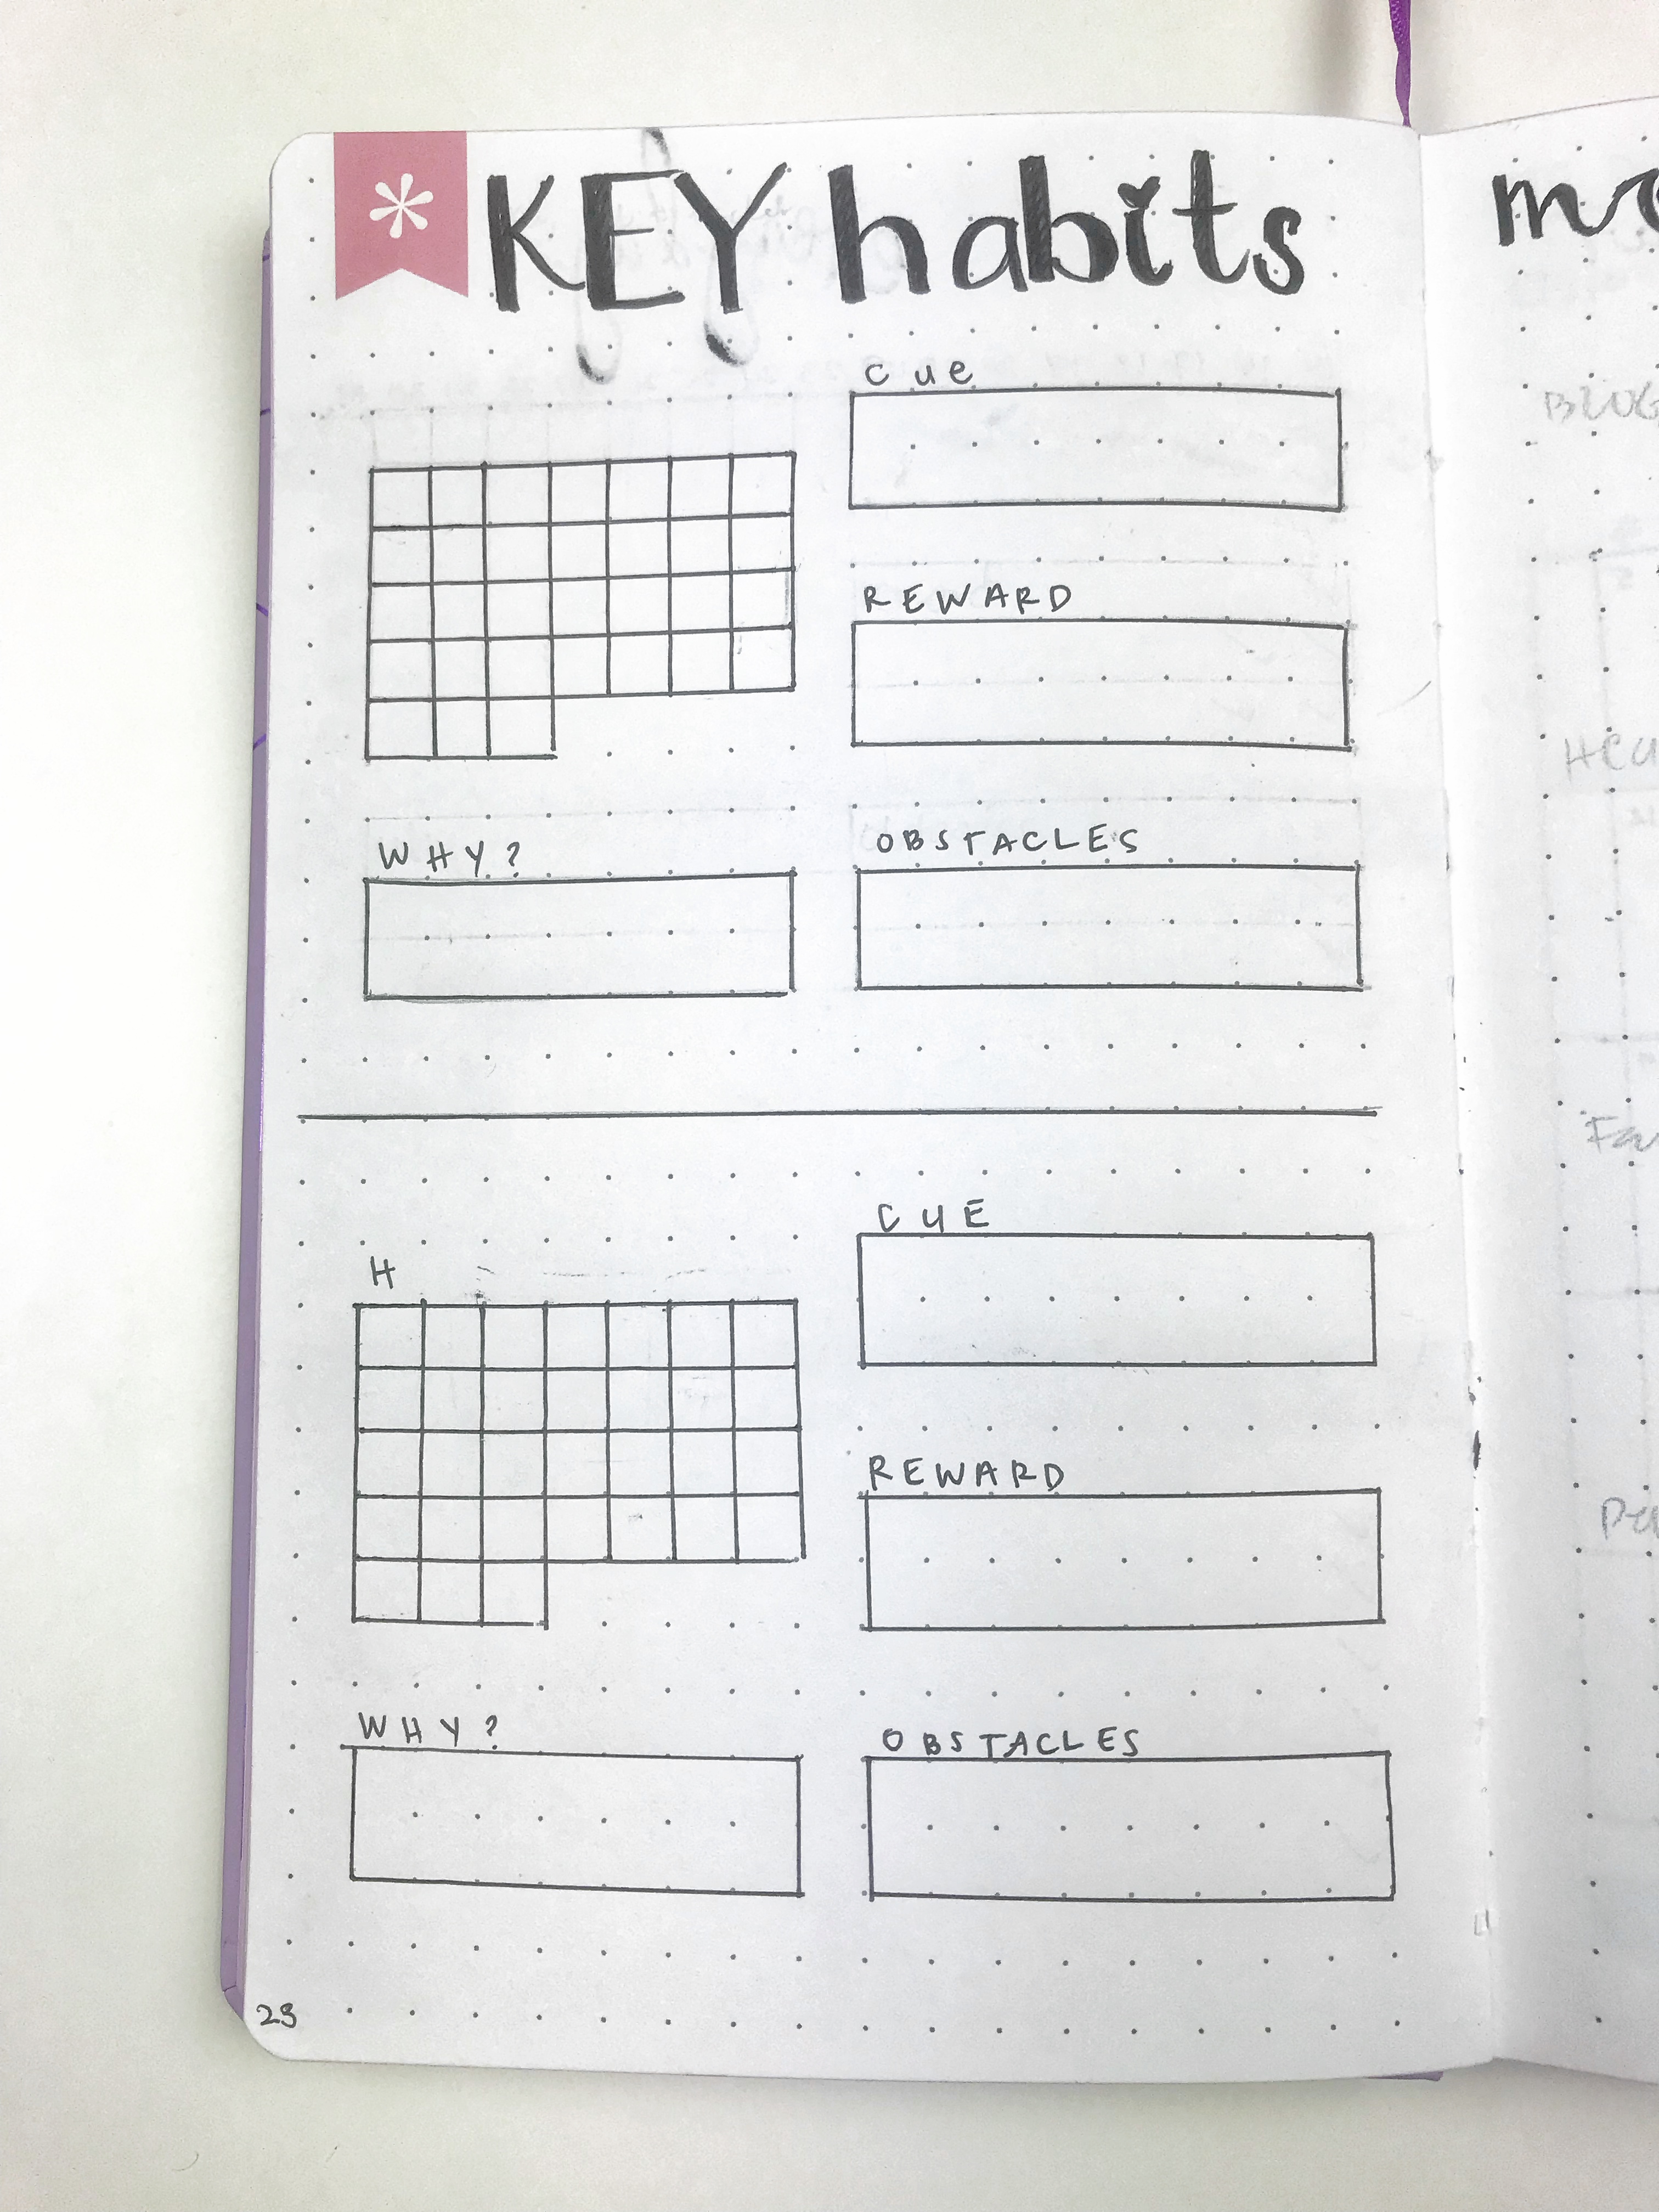 KEY habits
cue
REWARD
WHY?
OBSTACLES
CUE
H
REWARD
WHY?
OBSTACLES
23
BLOG